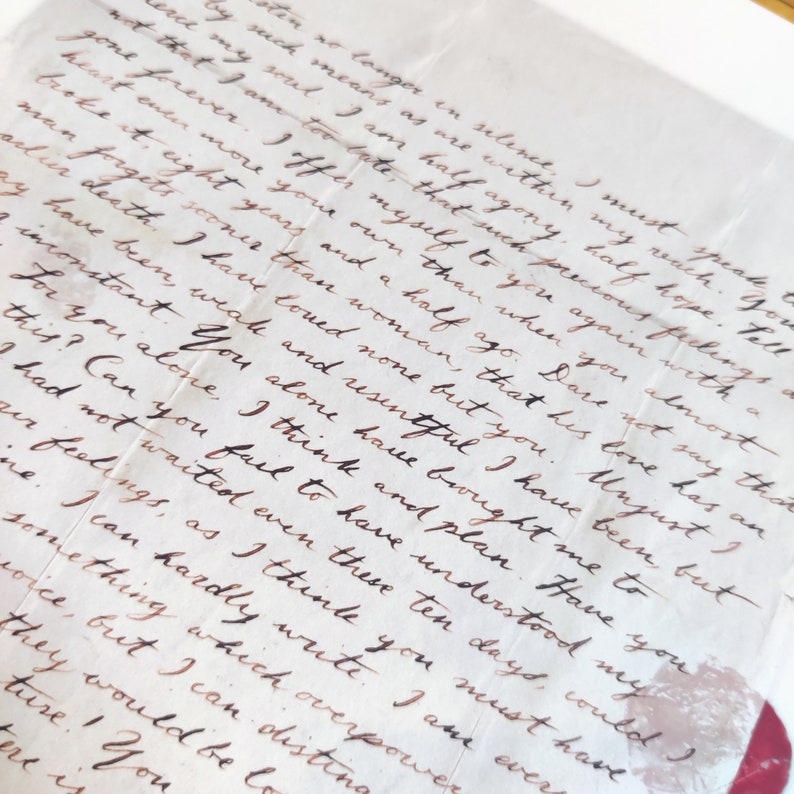 sten no longer in silence, I must speak t
by such means as are within my reach. You
ierce my soul. I am half agony, half hope. Tell
not that I am too late, that such precious feelings a
gone forever. I offer myself to you again with a
heart even more your own than when you almost
broke it, eight years and a half ago. Dare not say that
man forgets sooner than woman, that his love has an
earlier death. I have loved none but you. Unjust I
ay have been, weak and resentful I have been, but
r inconstant. You alone have brought me to
For you alone, I think and plan. Have you
this? Can you fail to have understood my
I had not waited even these ten days, could I
our feelings, as I think you must have
ine. I can hardly write. I am every
something which overpower
voice, but I can disting
they would be lo
ture! You
here is